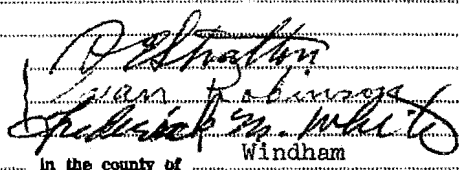 D E Stratton
Evan Robinson
Frederick M. White
in the county of Windham